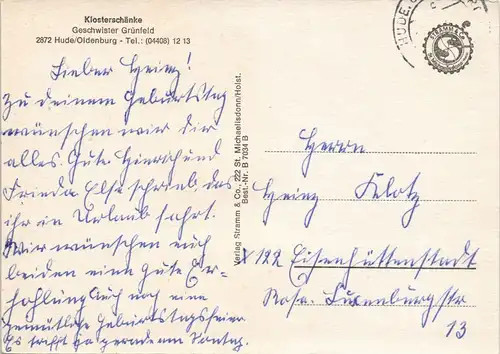 Klosterschänke
Geschwister Grünfeld
2872 Hude/Oldenburg - Tel.: (04408) 12 13
Lieber Heinz!
Zu deinem Geburtstag
wünschen wir dir
alles Gute Hinrich und
Frieda. Else schrieb das
ihr in Urlaub fahrt.
Wir wünschen euch
beiden eine gute Er-
hohlung Auch noch eine
gemütliche Geburtstagsfeier
Es trifft ja gerade am Sontag.
Verlag Stramm & Co., 222 St. Michaelisdonn/Holst.
Best.-Nr. B 7034 B
HUDE
STRAMM & CO
Herrn
Heinz Klotz
X 122 Eisenhüttenstadt
Rosa-Luxenburgstr
13